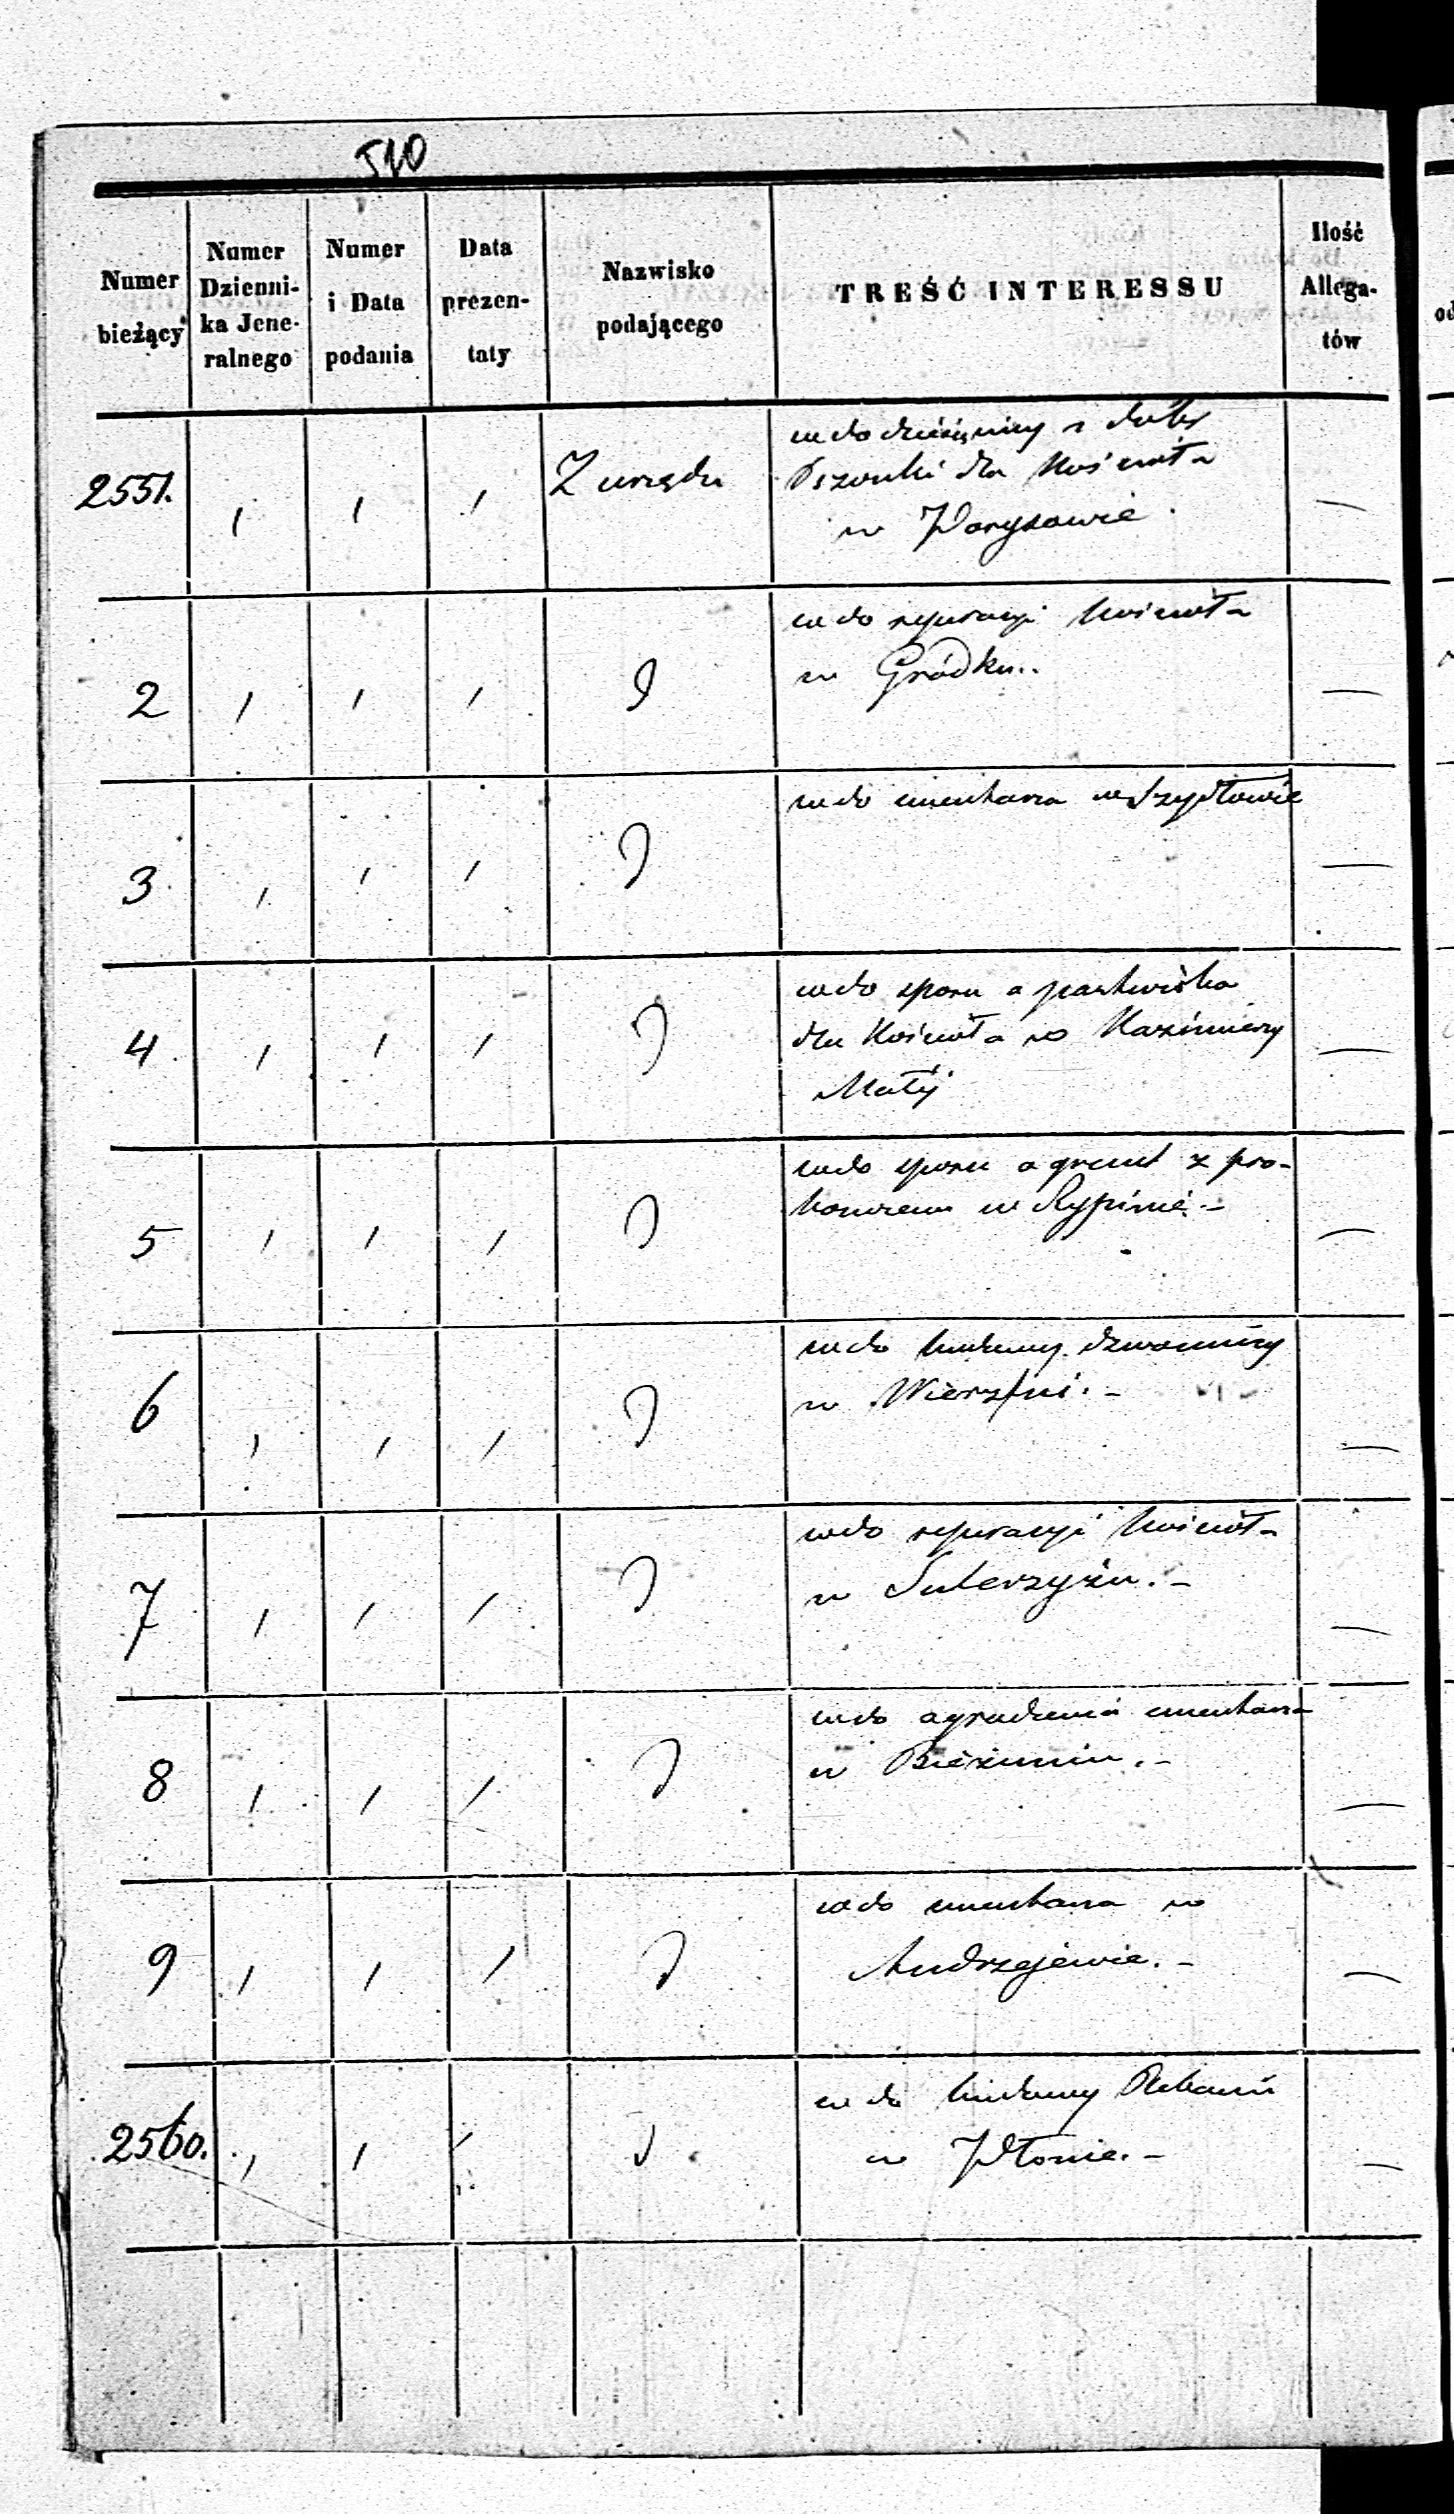 510
Numer bieżący
Numer Dzienni-ka Jene-ralnego
Numer i Data podania
Data prezen-taty
Nazwisko podającego
TREŚĆ INTERESSU
Ilość Allega-tów
2551. , , , Z urzędu
wdo dziesięciny z dóbr
Pszonki dla Kościoła
w Parysowie. —
2 , , , D
wdo reparacyi Kościoła
w Gródku.. —
3 , , , D
wdo cmentarza w Szydłowie —
4 , , , D
wdo sporu o pastwisko
dla Kościoła w Kazimierzy
Małéj —
5 , , , D
wdo sporu o grunt z pro-
boszczem w Rypinie. —
6 , , , D
wdo budowy dzwonnicy
w —
7 , , , D
wdo reparacyi Kościoła
w Sulerzyżu. —
8 , , , D
wdo ogrodzenia cmentarza
w Bieżuniu. —
9 , , , D
wdo cmentarza w
Andrzejewie. —
2560. , , , D
wdo budowy Plebanii
w —